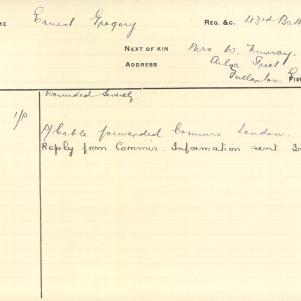 ME Ernest Gregory REG. &C. 43rd Batt
NEXT OF KIN Mrs W. Murray
ADDRESS Street
Fullarton
Wounded Severely
P/Cable forwarded London.
Reply from Commis. Information sent